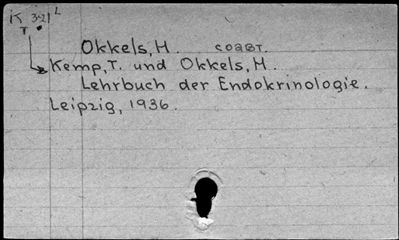 K 321 L
T
Okkels, H. соавт.
Kemp, T. und Okkels, H.
Lehrbuch der Endokrinologie.
Leipzig, 1936.